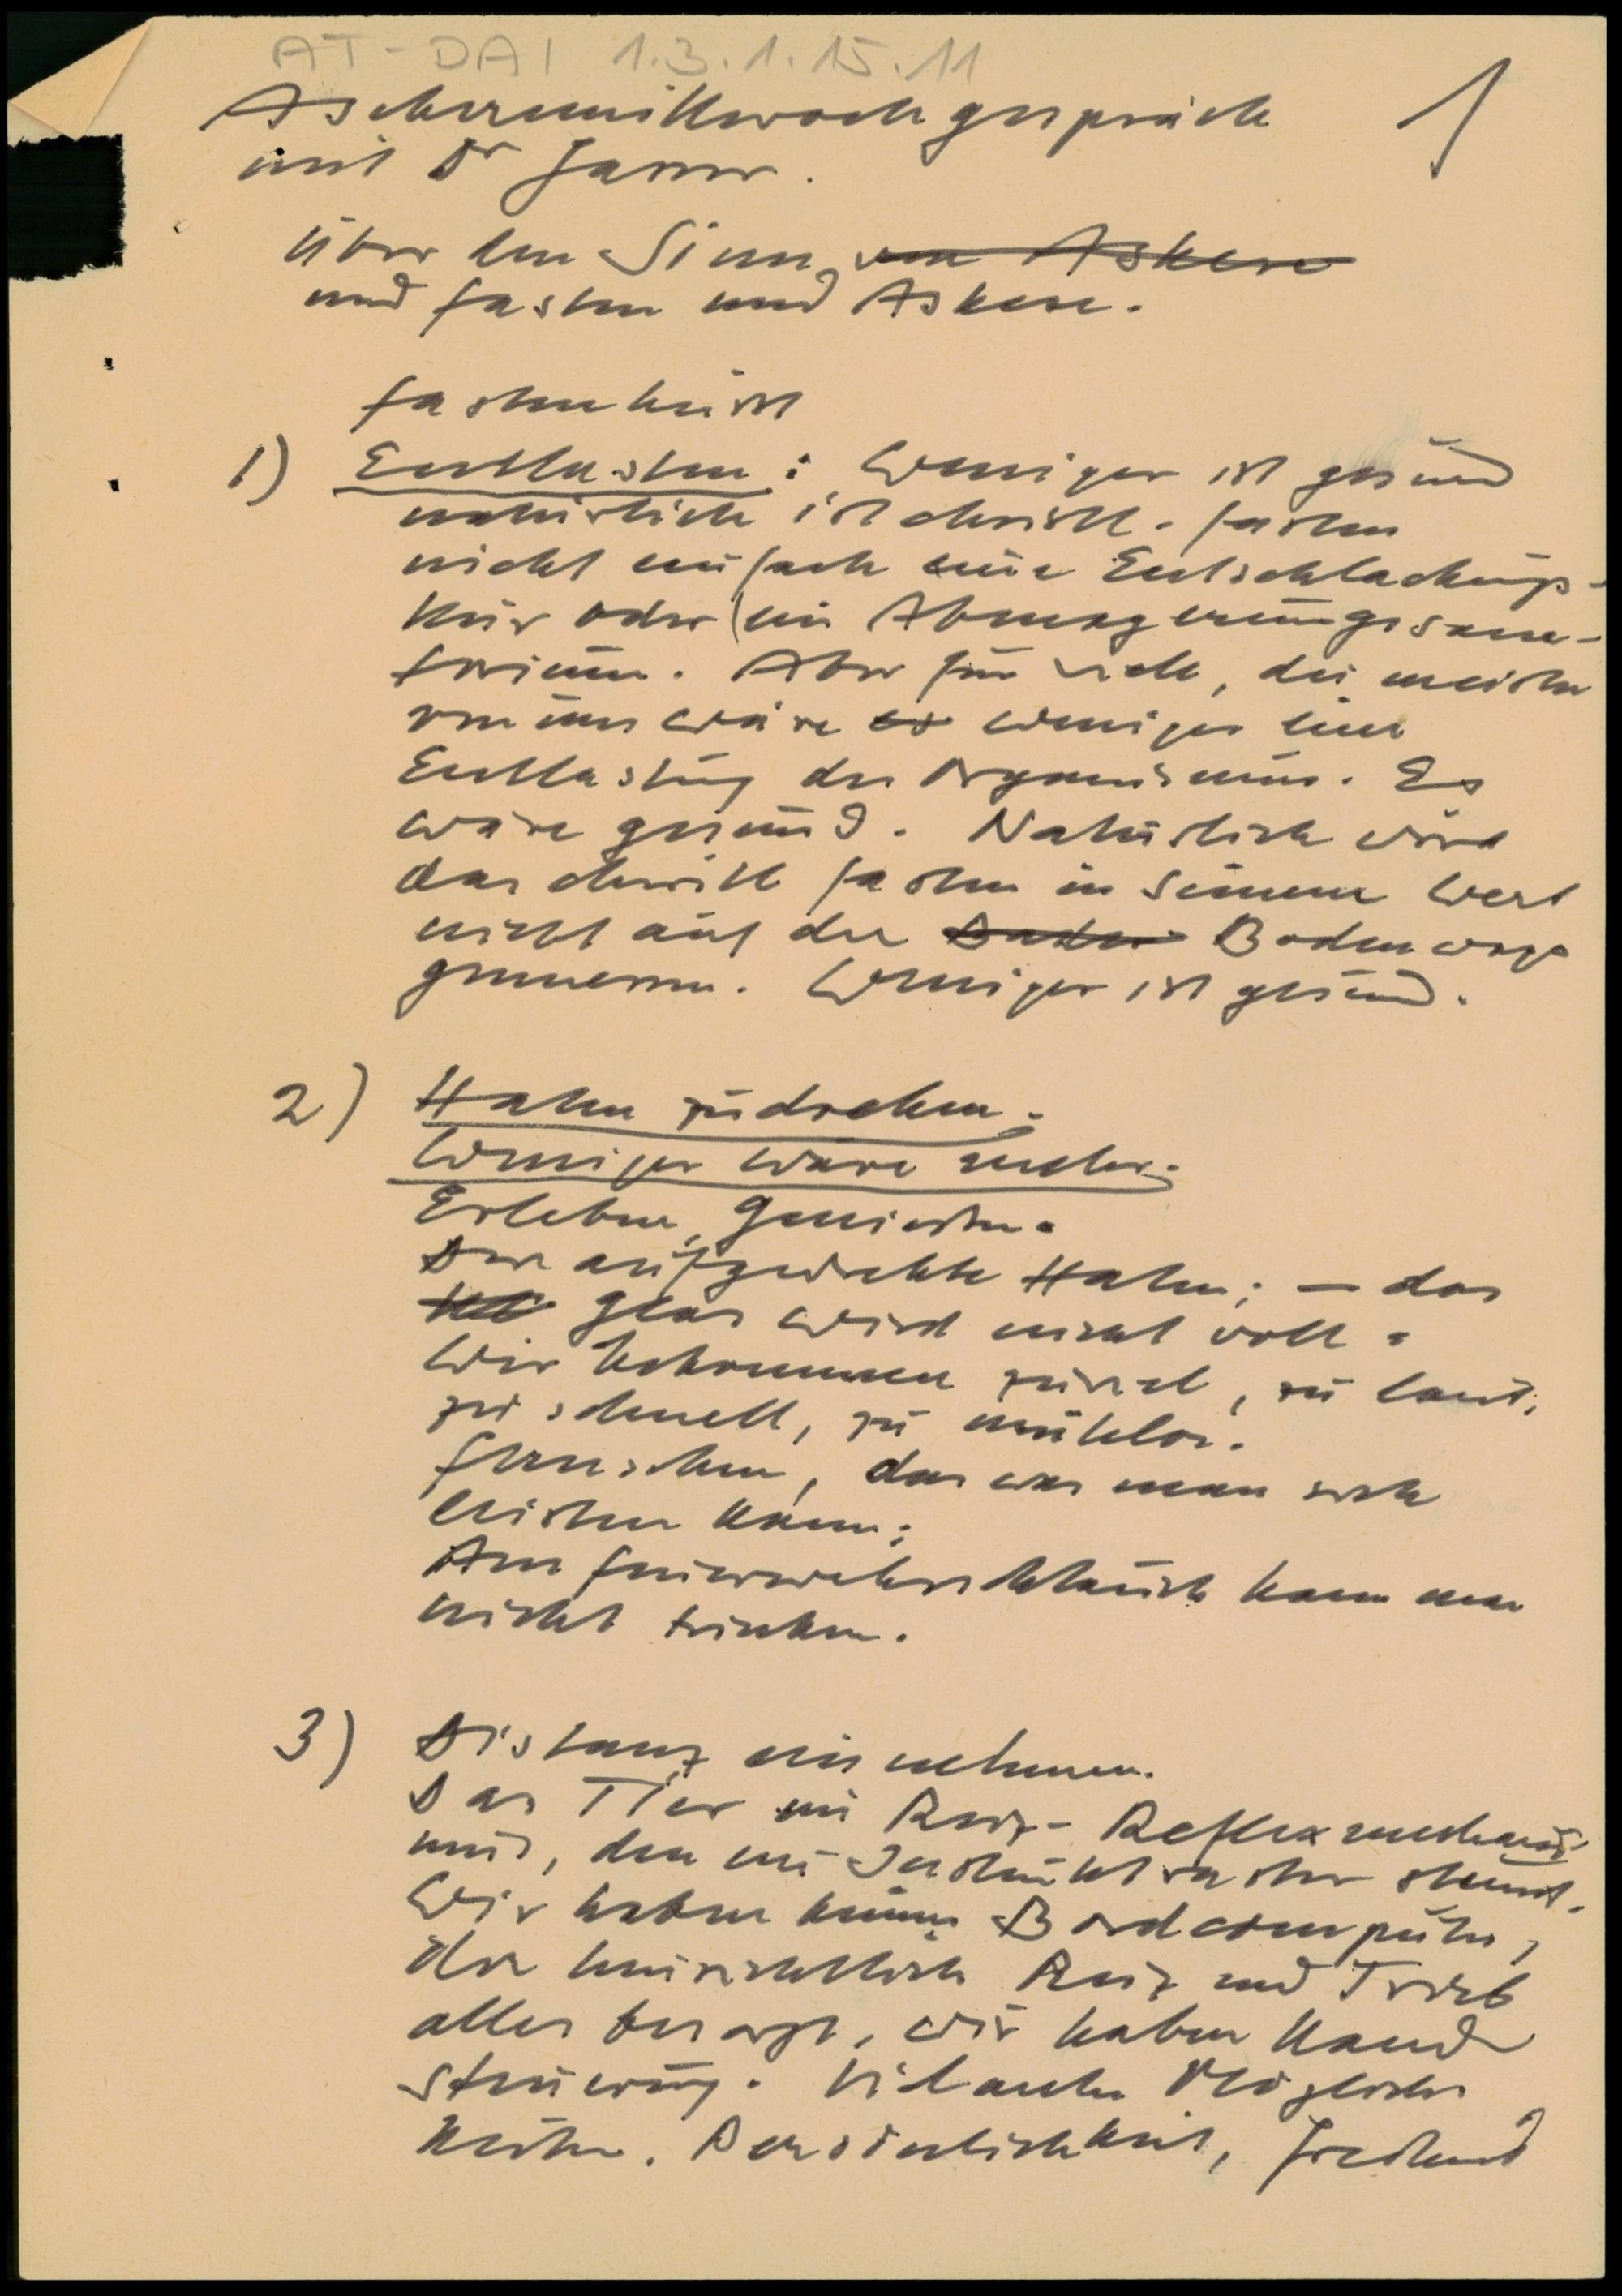 AT-DAI 1.3.1.15.11
Aschermittwochgespräch 1
mit Dr
über den Sinn von Askese
und fasten und Askese.
fasten heisst
1) Entlasten: Weniger ist gesund
natürlich ist christl. fasten
nicht einfach eine Entschlackungs-
kur oder ein Abmagerungssana-
torium. Aber für viele, die meisten
von uns wäre es weniger eine
Entlastung des Organismus. Es
wäre gesund. Natürlich wird
das christl fasten in seinem Wert
nicht auf der Boden Bodenwage
gemessen. Weniger ist gesund.
2) Hahn zudrehen.
Weniger wäre mehr.
Erleben, Geniessen.
Der aufgedrehte Hahn; – das
Glas wird nicht voll.
Wir bekommen zuviel, zu laut,
zu schnell, zu mühelos.
fernsehen, das was man sich
leisten kann;
Am feuerwehrschlauch kann man
nicht trinken.
3) Distanz einnehmen.
Das Tier ein Reiz-Reflexmechanis-
mus, den ein Instinktraster steuert.
Wir haben keinen Bordcomputer,
der hinsichtlich Reiz und Trieb
alles besorgt, wir haben Hand
steuerung. Viel mehr Möglich
keiten. Persönlichkeit, freiheit